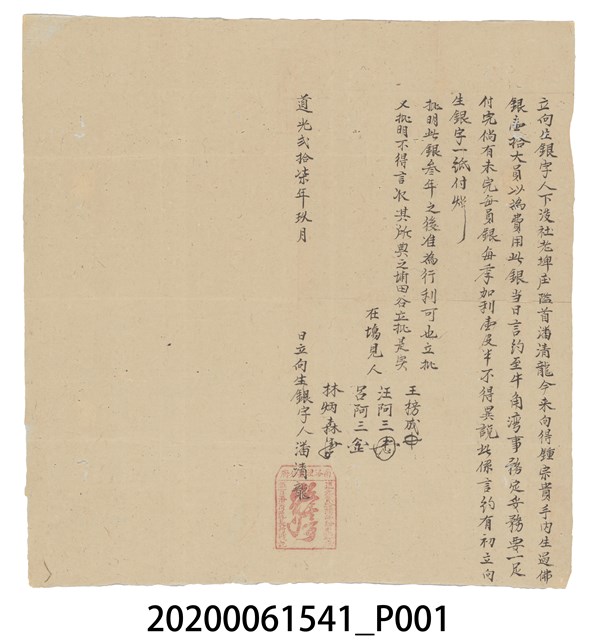 立向生銀字人下淡社老埤庄隘首潘清龍今來向得鍾宗貴手內生過佛
銀壹拾大員以為費用此銀当日言約至牛角湾事務定妥務要一足
付完倘有未完每員銀每季加利壹戔半不得異說此係言約有初立向
生銀字一紙付炤
批明此銀叁年之後准為行利可也立批
又批明不得言取其所典之埔田谷立批是实
在場見人
王榜成
汪阿三
呂阿三
林炳森筆
道光弍拾柒年玖月
日立向生銀字人潘清龍
20200061541_P001